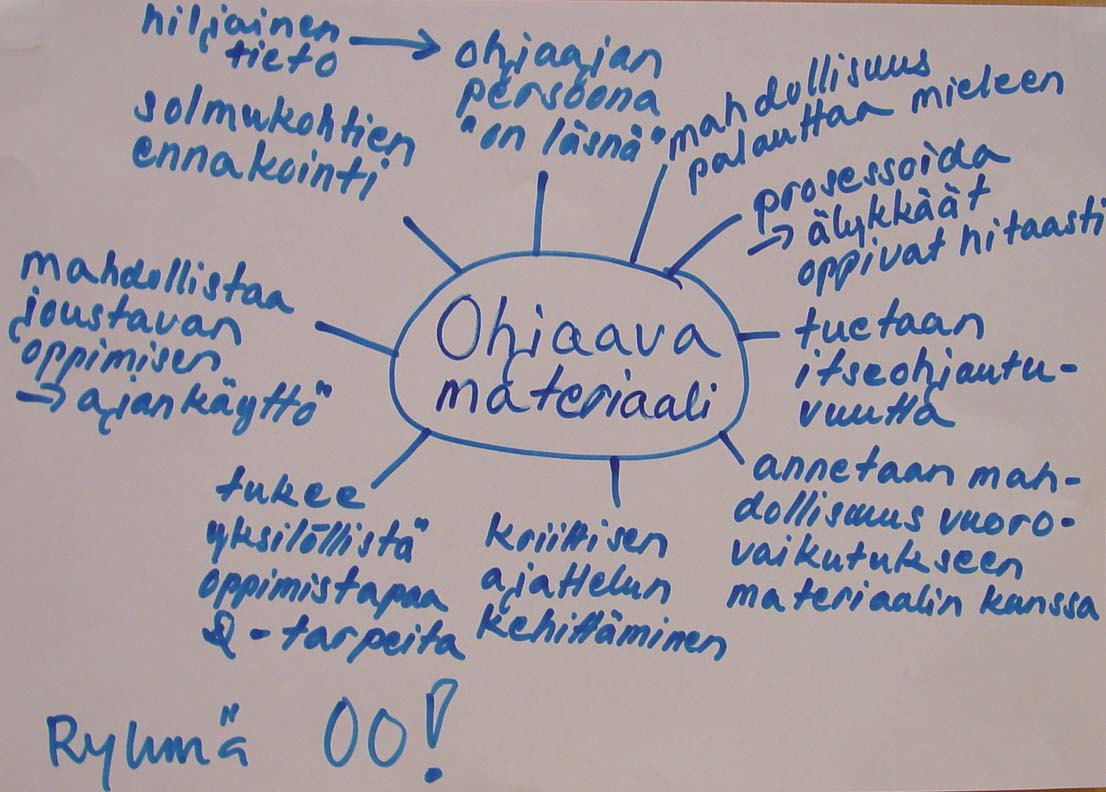 hiljainen
tieto → ohjaajan
persoona
"on läsnä"
mahdollisuus
palauttaa mieleen
prosessoida
→ älykkäät
oppivat hitaasti
tuetaan
itseohjautu-
vuutta
annetaan mah-
dollisuus vuoro-
vaikutukseen
materiaalin kanssa
kriittisen
ajattelun
kehittäminen
tukee
yksilöllistä
oppimistapaa
& -tarpeita
mahdollistaa
joustavan
oppimisen
→ ajankäyttö
solmukohtien
ennakointi
Ohjaava
materiaali
Ryhmä OO!